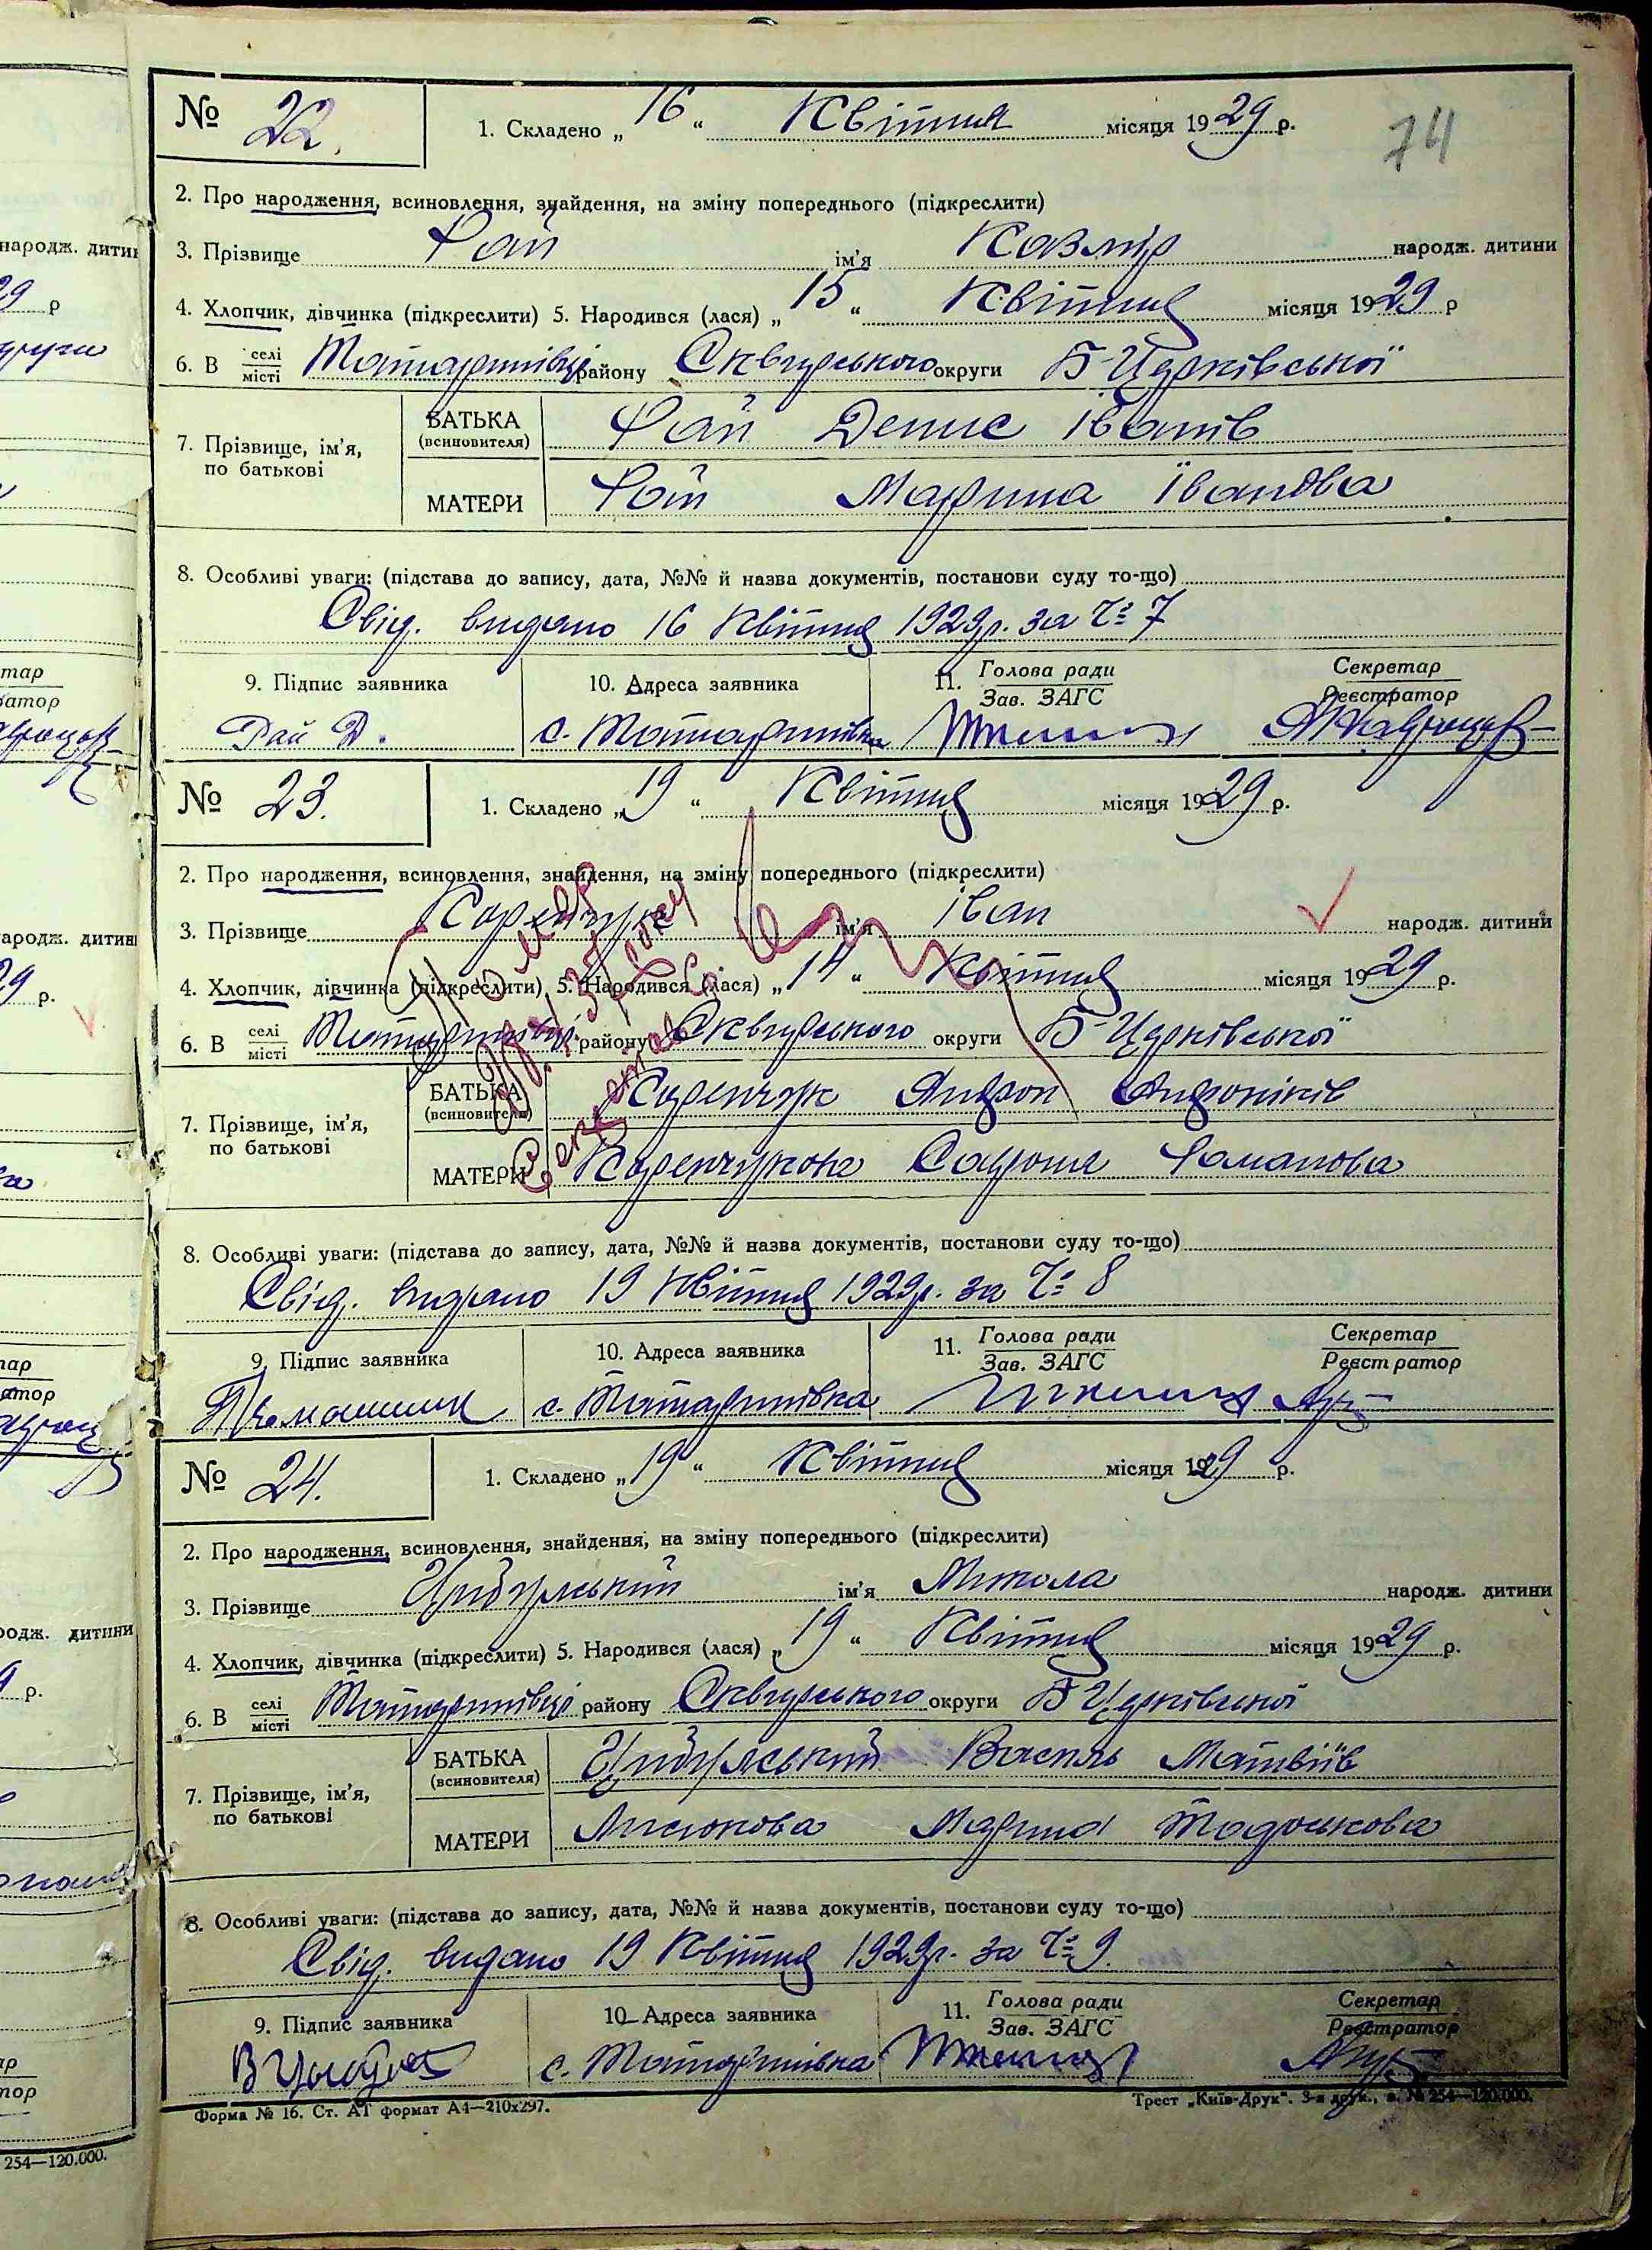 74
№ 22.
1. Складено „16“ Квітня місяця 1929 р.
2. Про народження, всиновлення, знайдення, на зміну попереднього (підкреслити)
3. Прізвище Рай ім’я Казмір народж. дитини
4. Хлопчик, дівчинка (підкреслити) 5. Народився (лася) „15“ Квітня місяця 1929 р
6. В селі місті Татаринівці району Сквирського округи Б-Церківської
7. Прізвище, ім’я, по батькові
БАТЬКА (всиновителя) Рай Денис Іванів
МАТЕРИ Рай Марина Іванова
8. Особливі уваги: (підстава до запису, дата, №№ й назва документів, постанови суду то-що)
Свід. видано 16 Квітня 1929р. за Ч: 7
9. Підпис заявника 10. Адреса заявника 11. Голова ради Зав. ЗАГС Секретар Реєстратор
Рай Д. с. Татаринівка
№ 23.
1. Складено „19“ Квітня місяця 1929 р.
2. Про народження, всиновлення, знайдення, на зміну попереднього (підкреслити)
3. Прізвище Каренчук ім’я Іван народж. дитини
4. Хлопчик, дівчинка (підкреслити) 5. Народився (лася) „14“ Квітня місяця 1929 р.
6. В селі місті Татаринівці району Сквирського округи Б-Церківської
7. Прізвище, ім’я, по батькові
БАТЬКА (всиновителя) Каренчук Андрон Андроніків
МАТЕРИ Каренчукова Романова
8. Особливі уваги: (підстава до запису, дата, №№ й назва документів, постанови суду то-що)
Свід. видано 19 Квітня 1929р. за Ч: 8
9. Підпис заявника 10. Адреса заявника 11. Голова ради Зав. ЗАГС Секретар Реєстратор
с. Татаринівка
№ 24.
1. Складено „19“ Квітня місяця 1929 р.
2. Про народження, всиновлення, знайдення, на зміну попереднього (підкреслити)
3. Прізвище Цибульський ім’я Микола народж. дитини
4. Хлопчик, дівчинка (підкреслити) 5. Народився (лася) „19“ Квітня місяця 1929 р.
6. В селі місті Татаринівці району Сквирського округи Б-Церківської
7. Прізвище, ім’я, по батькові
БАТЬКА (всиновителя) Цибульський Василь Матвіїв
МАТЕРИ Марина Тодоськова
8. Особливі уваги: (підстава до запису, дата, №№ й назва документів, постанови суду то-що)
Свід. видано 19 Квітня 1929р. за Ч: 9.
9. Підпис заявника 10. Адреса заявника 11. Голова ради Зав. ЗАГС Секретар Реєстратор
с. Татаринівка
Форма № 16. Ст. АТ формат А4—210х297.
Трест „Київ-Друк“. 3-я друк., з. № 254—120.000.
254—120.000.